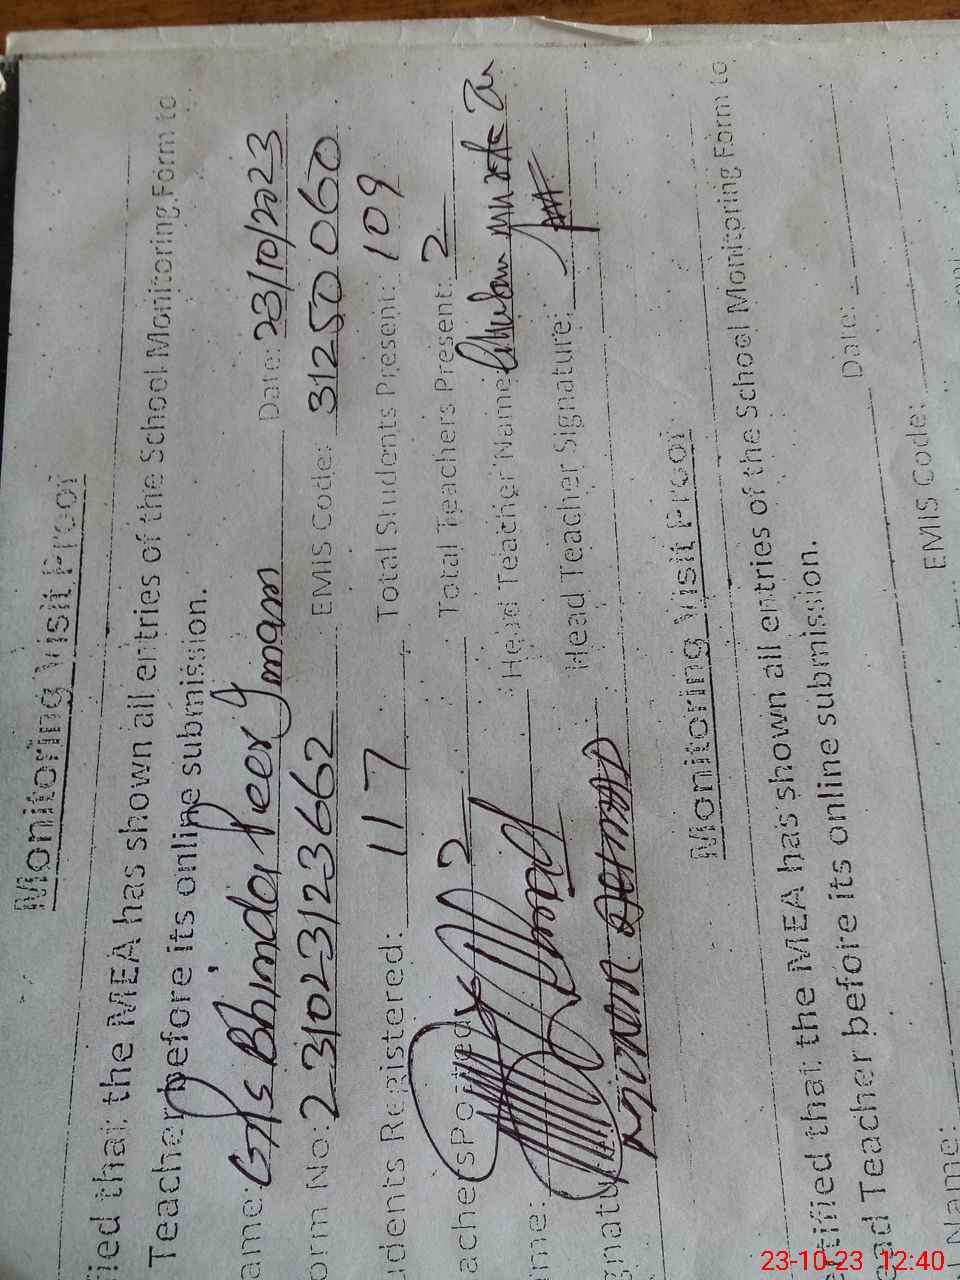 Monitoring Visit Proof
fied that the MEA has shown all entries of the School Monitoring Form to
Teacher before its online submission.
ame: GPS Bhinder Peer Imam Date: 23/10/2023
orm No: 231023123662 EMIS Code: 31250060
udents Registered: 117 Total Students Present: 109
achers Posted: 2 Total Teachers Present: 2
me: Head Teacher Name:
gnatu Head Teacher Signature:
Monitoring Visit Proof
ertified that the MEA has shown all entries of the School Monitoring Form to
ead Teacher before its online submission.
Name: Date:
EMIS Code:
23-10-23 12:40